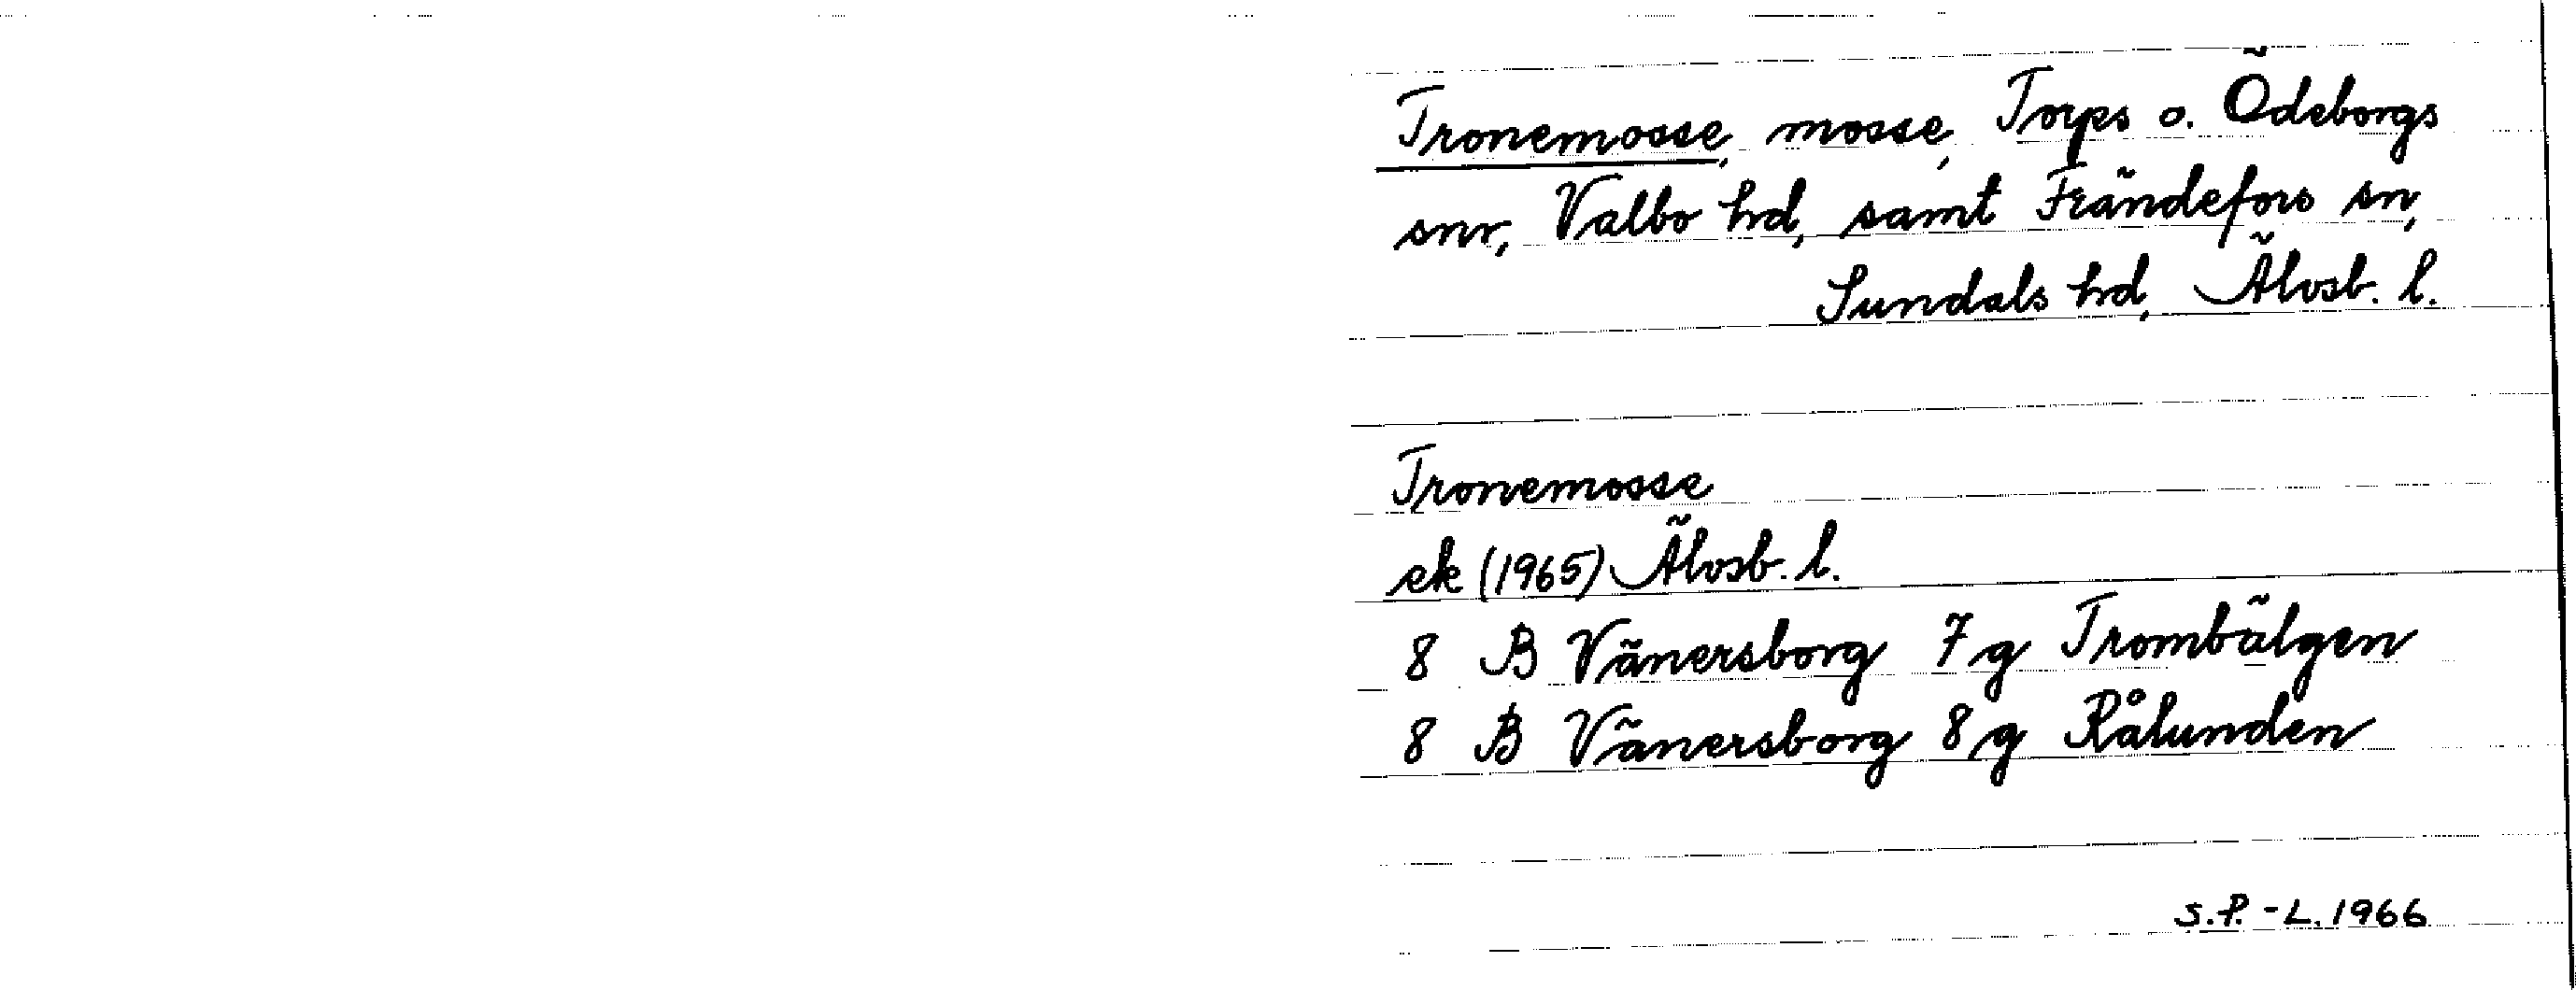 Tronemosse, mosse, Torps o. Ödeborgs
snr, Valbo hd, samt Frändefors sn,
Sundals hd, Älvsb. l.
Tronemosse
ek (1965) Älvsb. l.
8 B Vänersborg 7 g Trombälgen
8 B Vänersborg 8 g Rålunden
S.P.-L. 1966